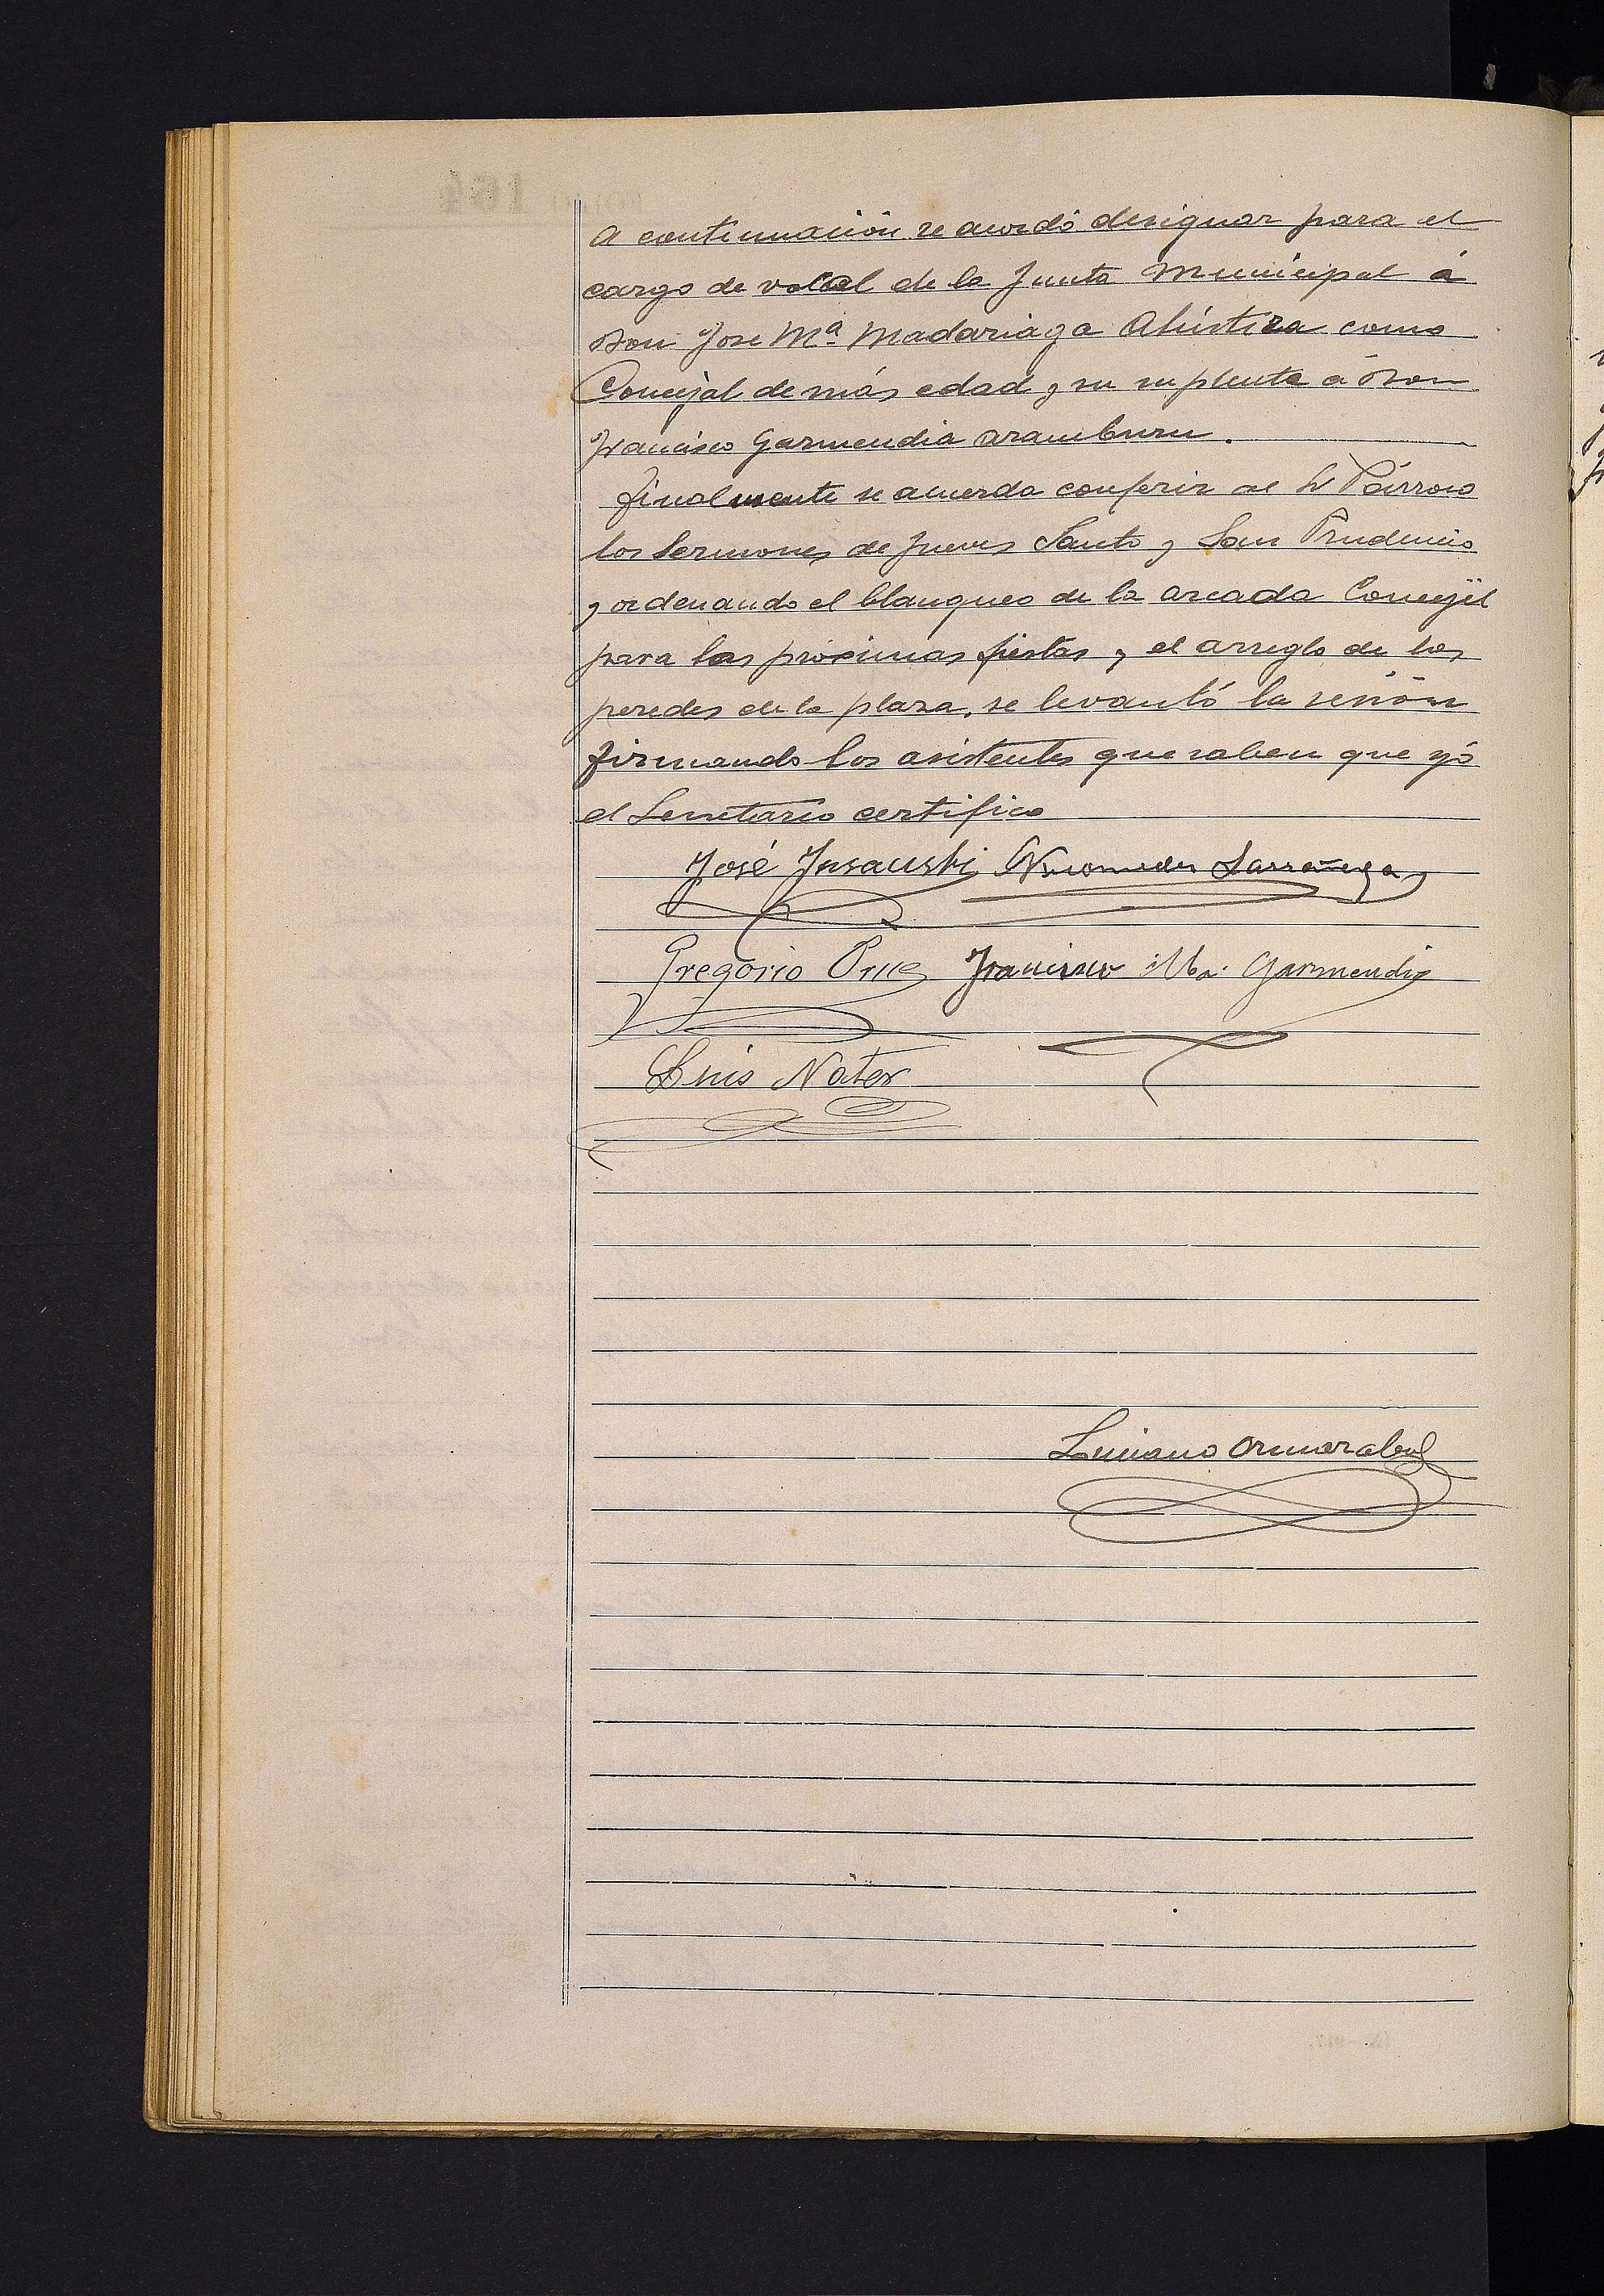 A continuación se acordó designar para el
cargo de vocal de la Junta Municipal á
Don Jose Mª Madariaga Alústiza como
Concejal de más edad y su suplente á Don
Francisco Garmendia Aramburu.
Finalmente se acuerda conferir al Sr Párroco
los Sermones de Jueves Santo y San Prudencio
y ordenando el blanqueo de la arcada Concejil
para las próximas fiestas y el arreglo de las
peredes de la plaza, se levantó la sesión
firmando los asistentes que saben que yó
el Secretario certifico
José Insausti Nicomedes Larrañaga
Gregorio Orue Francisco Ma. Garmendia
Luis Nater
Luciano Ormazabal